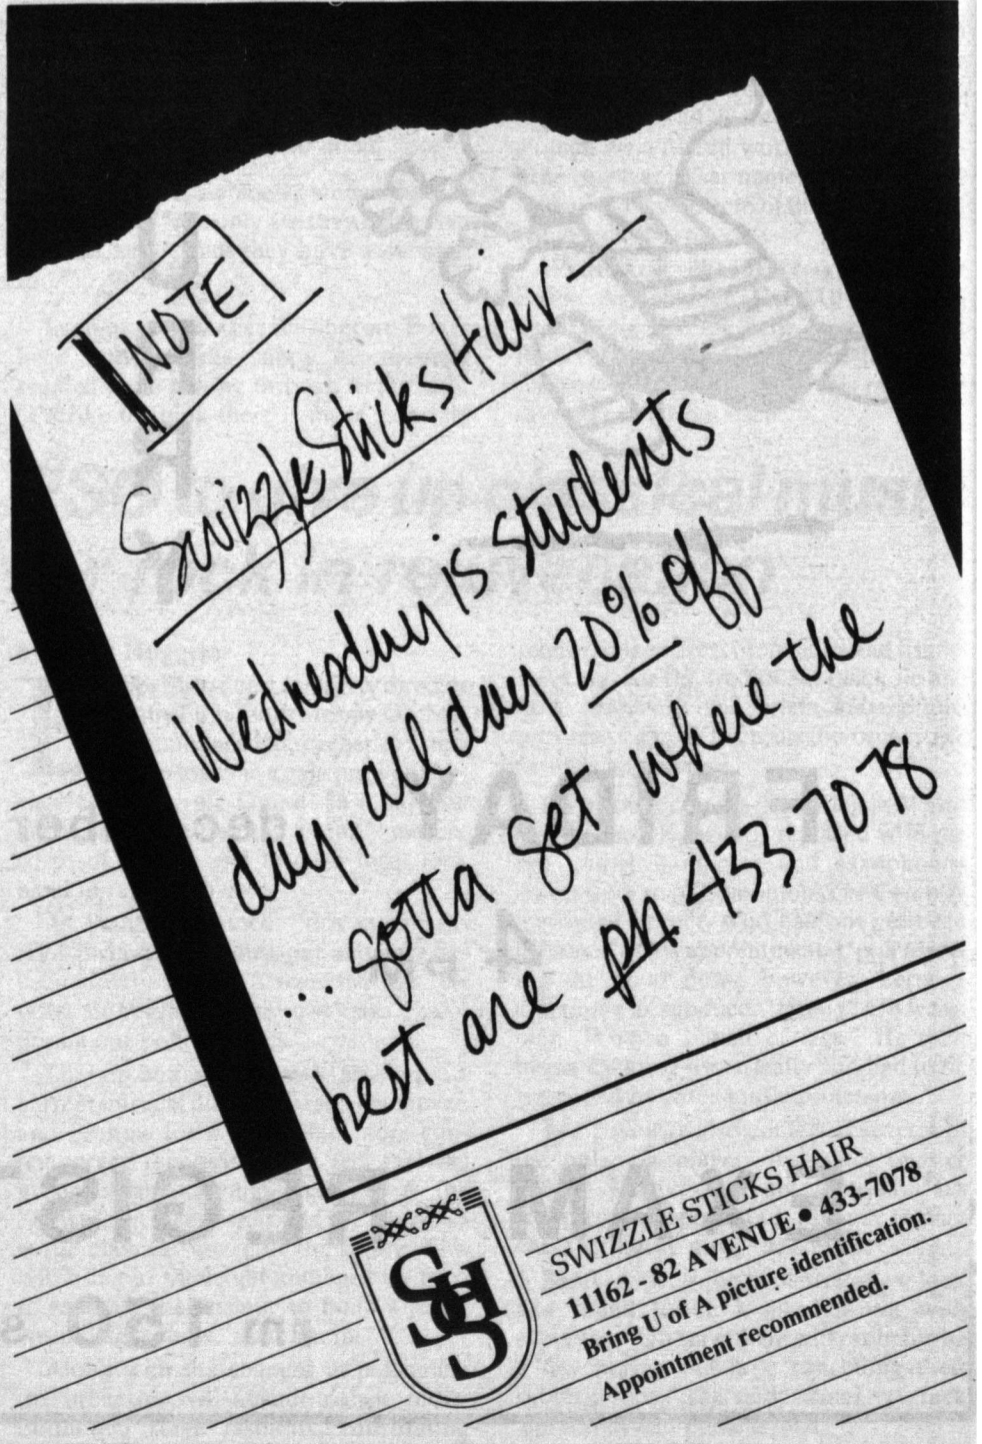 NOTE
Swizzle Sticks Hair —
Wednesday is students
day, all day 20% off
... gotta get where the
best are ph 433·7078
SHS
SWIZZLE STICKS HAIR
11162 - 82 AVENUE • 433-7078
Bring U of A picture identification.
Appointment recommended.